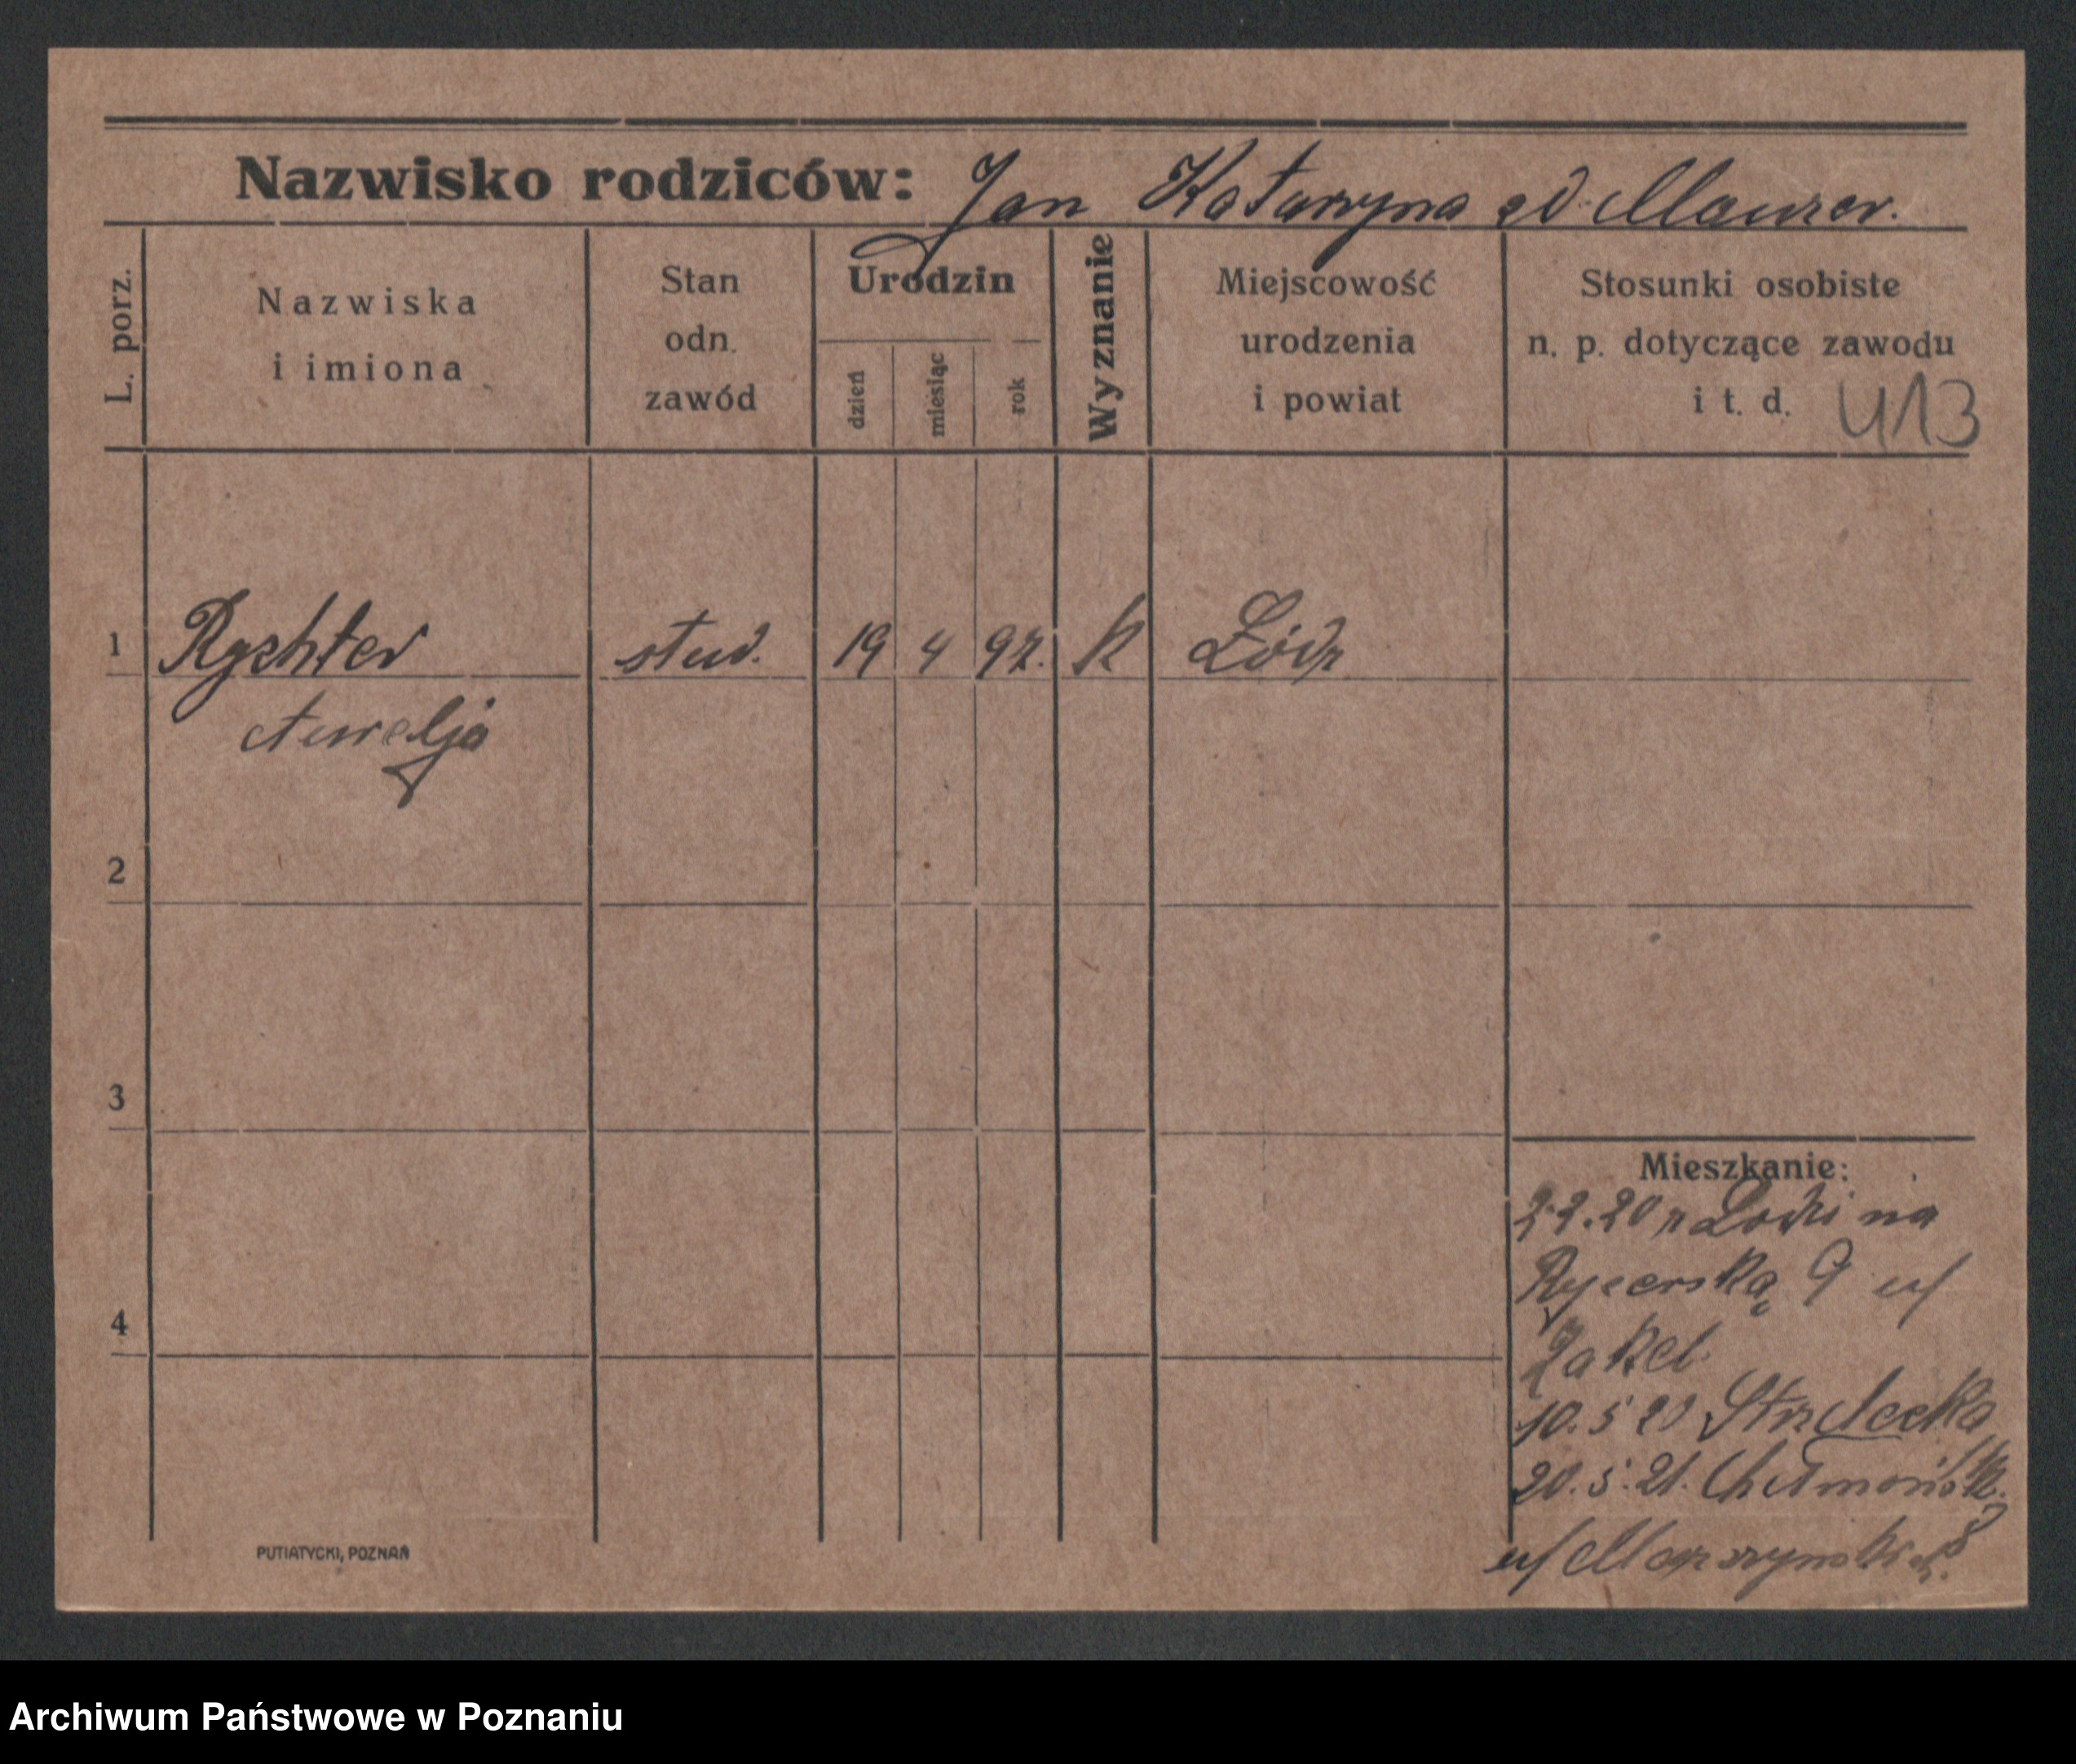 Nazwisko rodziców: Jan Katarzyna zd Maurer.
L. porz.
Nazwiska
i imiona
Stan
odn.
zawód
Urodzin
dzień
miesiąc
rok
Wyznanie
Miejscowość
urodzenia
i powiat
Stosunki osobiste
n. p. dotyczące zawodu
i t. d.
413
1 Rychter stud. 19 4 97. k Łódz
Aurelja
2
3
4
Mieszkanie:
2.2.20 z Łodzi na
Rycerską 9 u/
10. 5 20 Strzelecka
20. 5. 21. Chełmońsk.
PUTIATYCKI, POZNAŃ
Archiwum Państwowe w Poznaniu